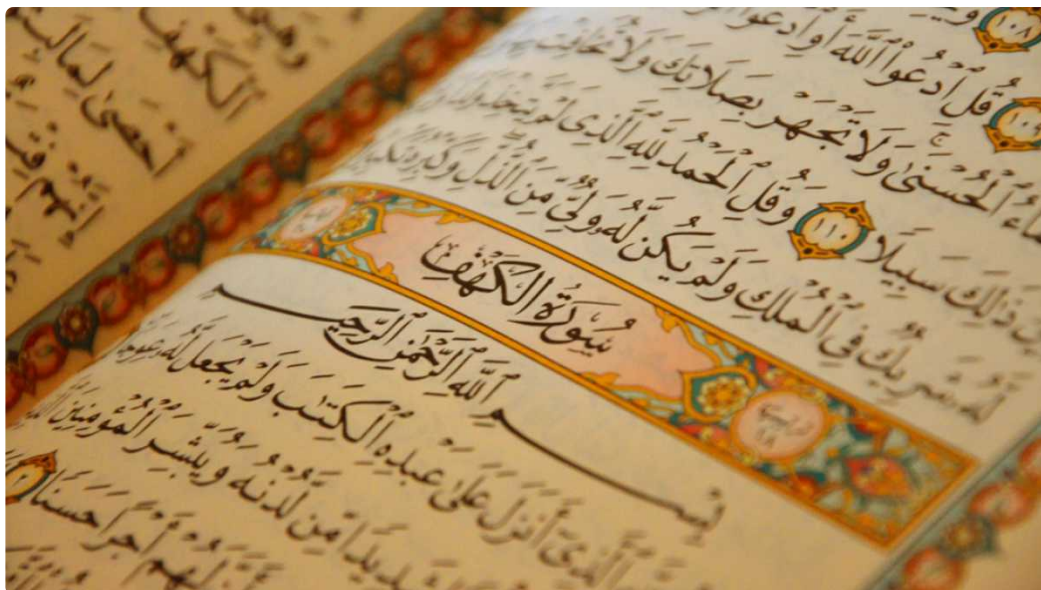 ١٠٨
قُلِ ٱدْعُوا۟ ٱللَّهَ أَوِ ٱدْعُوا۟
ٱلْحُسْنَىٰ وَلَا تَجْهَرْ بِصَلَاتِكَ وَلَا تُخَافِتْ
ذَٰلِكَ سَبِيلًا ١١٠ وَقُلِ ٱلْحَمْدُ لِلَّهِ ٱلَّذِى لَمْ يَتَّخِذْ وَلَدًا
لَّهُۥ شَرِيكٌ فِى ٱلْمُلْكِ وَلَمْ يَكُن لَّهُۥ وَلِىٌّ مِّنَ ٱلذُّلِّ وَكَبِّرْهُ تَكْبِيرًا
سُورَةُ الكَهْفِ
بِسْمِ ٱللَّهِ ٱلرَّحْمَٰنِ ٱلرَّحِيمِ
ٱلَّذِىٓ أَنزَلَ عَلَىٰ عَبْدِهِ ٱلْكِتَٰبَ وَلَمْ يَجْعَل لَّهُۥ عِوَجَا
مِّن لَّدُنْهُ وَيُبَشِّرَ ٱلْمُؤْمِنِينَ
لَهُمْ أَجْرًا حَسَنًا
ٱلْكَهْفِ
أَحْصَىٰ لِمَا